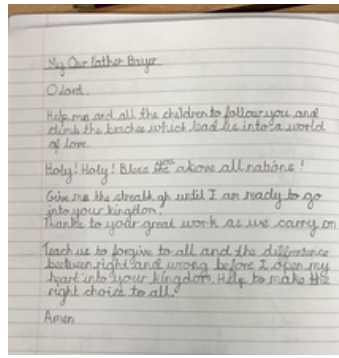 My Our Father Prayer
O Lord.
Help me and all the children to follow you and
climb the  which lead us into a world
of love.
Holy! Holy! Bless you above all nations!
Give me the until I am ready to go
into your kingdom.
Thanks to your great work as we carry on
Teach us to forgive to all and the
between right and wrong before I open my
heart into your kingdom. Help to make the
right choice to all.
Amen